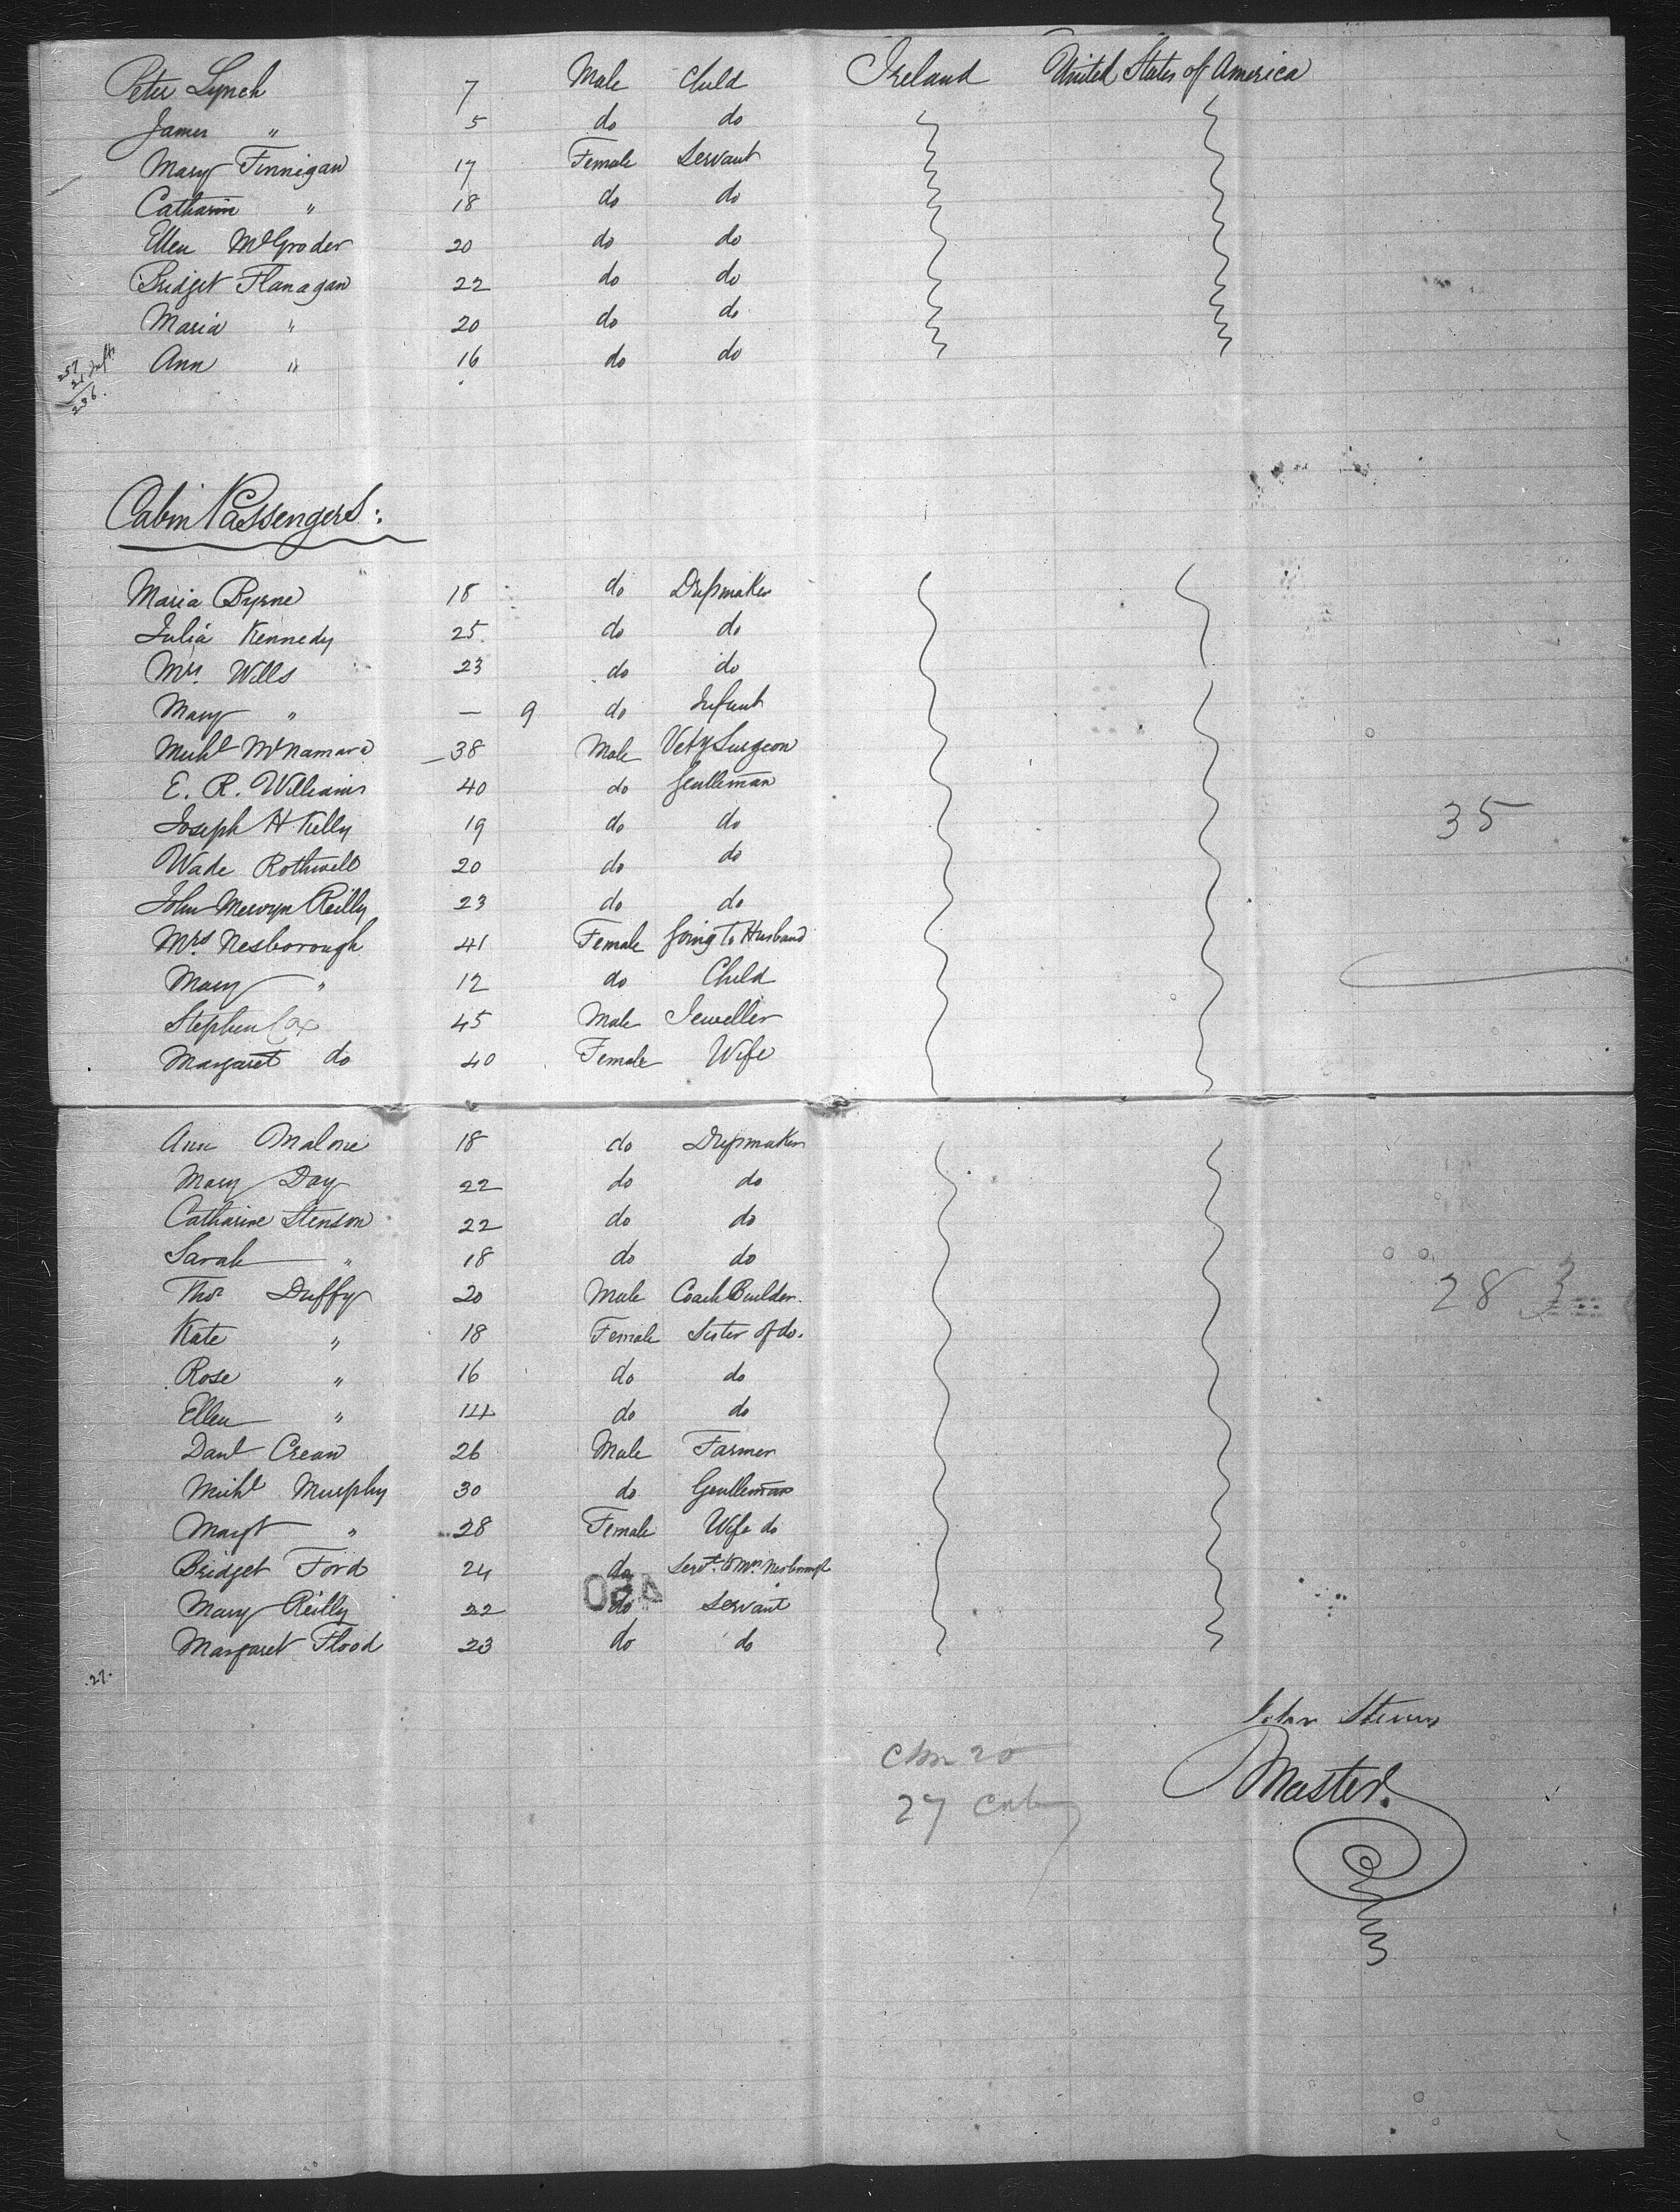 Peter Lynch 7 Male Child Ireland United States of America
James " 5 do do
Mary Finnigan 17 Female Servant
Catharin " 18 do do
Ellen McGroder 20 do do
Bridget Flanagan 22 do do
Maria " 20 do do
Ann " 16 do do
257
21 Infts
236.
Cabin Passengers:
Maria Byrne 18 do Dressmaker
Julia Kennedy 25 do do
Mrs. Wills 23 do do
Mary " — 9 do Infant
Michl McNamara 38 Male Vety Surgeon
E. R. Williams 40 do Gentleman
Joseph H Kelly 19 do do
35
Wade Rothwell 20 do do
John Mervyn Reilly 23 do do
Mrs Nesborough 41 Female Going to Husband
Mary " 12 do Child
Stephen Cox 45 Male Jeweller
Margaret do 40 Female Wife
Ann Malone 18 do Dressmaker
Mary Day 22 do do
Catharine Stenson 22 do do
Sarah " 18 do do
Thos Duffy 20 Male Coach Builder.
28 3
Kate " 18 Female Sister of do.
Rose " 16 do do
Ellen " 14 do do
Danl Crean 26 Male Farmer
Michl Murphy 30 do Gentleman
Margt " 28 Female Wife do
Bridget Ford 24 do Servt. to Mrs. Nesborough
Mary Reilly 22 do Servant
Margaret Flood 23 do do
27.
John Stevens
Master.
20
27 Cab